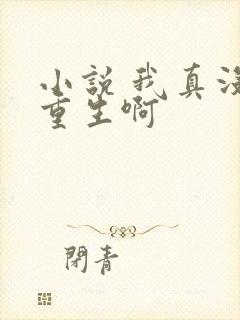 小說我真沒
重生啊
閉青